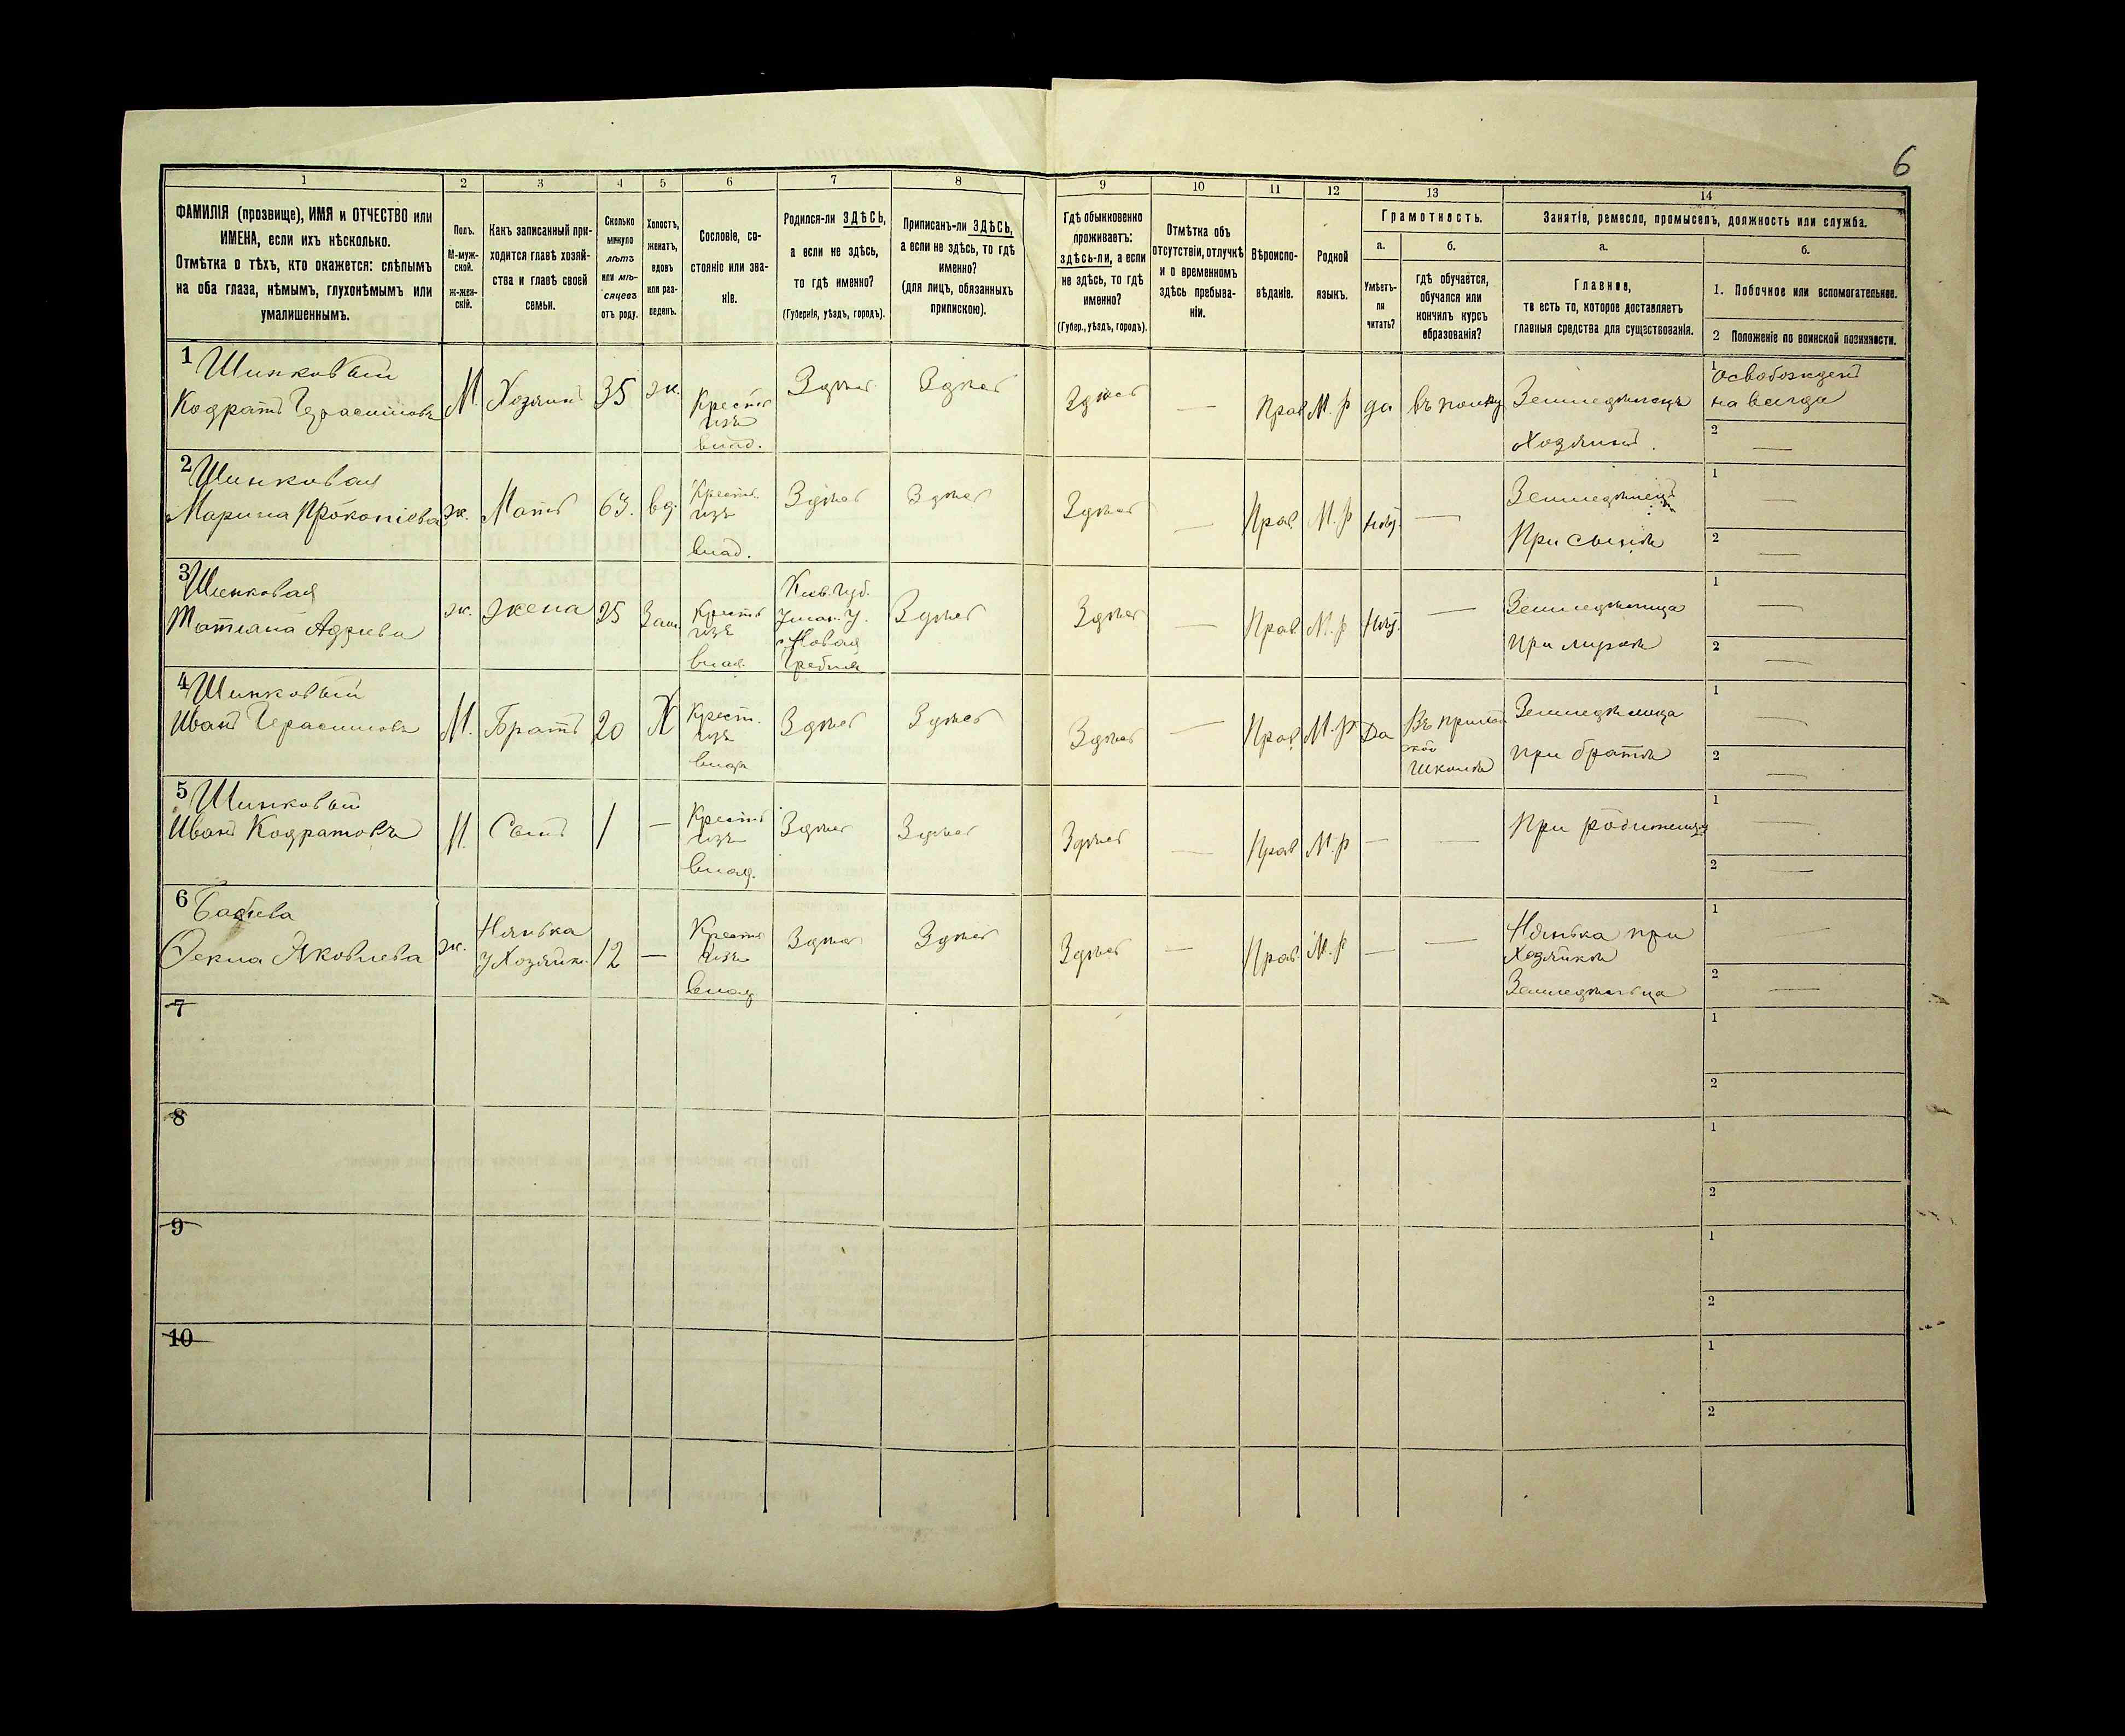 6
1 2 3 4 5 6 7 8 9 10 11 12 13 14
ФАМИЛІЯ (прозвище), ИМЯ и ОТЧЕСТВО или
ИМЕНА, если ихъ нѣсколько.
Отмѣтка о тѣхъ, кто окажется: слѣпымъ
на оба глаза, нѣмымъ, глухонѣмымъ или
умалишеннымъ.
Полъ.
М-муж-
ской.
Ж-жен-
скій.
Какъ записанный при-
ходится главѣ хозяй-
ства и главѣ своей
семьи.
Сколько
минуло
лѣтъ
или мѣ-
сяцевъ
отъ роду.
Холостъ,
женатъ,
вдовъ
или раз-
веденъ.
Сословіе, со-
стояніе или зва-
ніе.
Родился-ли ЗДѢСЬ,
а если не здѣсь,
то гдѣ именно?
(Губернія, уѣздъ, городъ).
Приписанъ-ли ЗДѢСЬ,
а если не здѣсь, то гдѣ
именно?
(для лицъ, обязанныхъ
припискою).
Гдѣ обыкновенно
проживаетъ:
здѣсь-ли, а если
не здѣсь, то гдѣ
именно?
(Губер., уѣздъ, городъ).
Отмѣтка объ
отсутствіи, отлучкѣ
и о временномъ
здѣсь пребыва-
ніи.
Вѣроиспо-
вѣданіе.
Родной
языкъ.
Грамотность.
а.
Умѣетъ-
ли
читать?
б.
гдѣ обучается,
обучался или
кончилъ курсъ
образованія?
Занятіе, ремесло, промыселъ, должность или служба.
а.
Главное,
то есть то, которое доставляетъ
главныя средства для существованія.
б.
1. Побочное или вспомогательное.
2 Положеніе по воинской повинности.
1 Шинковый
Кодратъ Герасимовъ
М. Хозяинъ 35 ж.
Крестъ
изъ
влад.
Здѣсь Здѣсь Здѣсь — Прав М.р да въ полку
Земледѣлецъ
Хозяинъ.
1 Освобожденъ
на всегда
2 —
2 Шинковая
Марина Прокопіева
ж. Мать 63. вд.
Крестъ
изъ
влад.
Здѣсь Здѣсь Здѣсь — Прав. М.р —
Земледѣлецъ
При сынѣ
1 —
2 —
3 Шинковая
Татіана
ж. жена 25 Зам
Крестъ
изъ
влад.
Кіев. Губ.
Уман. У.
Новая
Гребля
Здѣсь Здѣсь — Прав. М.р —
Земледѣлица
при мужѣ
1 —
2 —
4 Шинковый
Иванъ Герасимовъ
М. Братъ 20 Х
Крест.
изъ
влад
Здѣсь Здѣсь Здѣсь — Прав М.р Да
Въ приход
ской
школѣ
Земледѣлица
при братѣ
1 —
2 —
5 Шинковый
Иванъ Кодратовъ
М. Сынъ 1 —
Крестъ
изъ
влад.
Здѣсь Здѣсь Здѣсь — Прав М.р — —
При родителяхъ
1 —
2 —
6
Ѳекла Яковлева
ж.
Нянька
у Хозяина
12 —
Крестъ
изъ
влад
Здѣсь Здѣсь Здѣсь — Прав. М.р — —
Нянька при
Хозяйкѣ
Земледѣльца
1 —
2 —
7
1
2
8
1
2
9
1
2
10
1
2